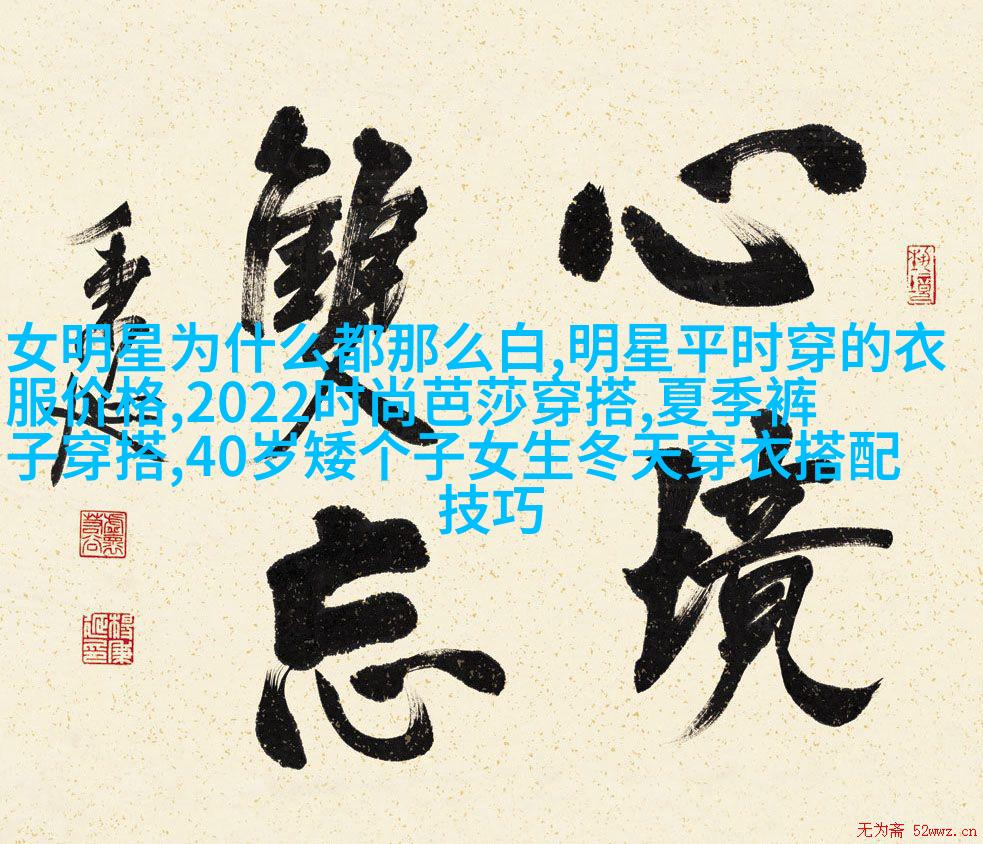 心境
雙忘
女明星为什么都那么白,明星平时穿的衣
服价格,2022时尚芭莎穿搭,夏季裤
子穿搭,40岁矮个子女生冬天穿衣搭配
技巧
无为斋 52wwz.cn